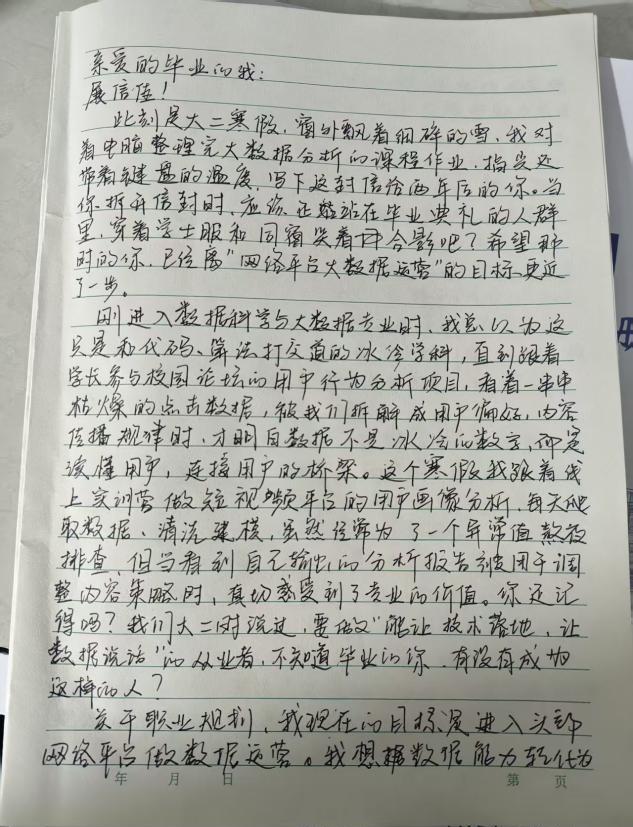 亲爱的毕业的我：
展信佳！
此刻是大二寒假，窗外飘着细碎的雪，我对
着电脑整理完大数据分析的课程作业，指尖还
带着键盘的温度，写下这封信给两年后的你。当
你拆开信封时，应该正站在毕业典礼的人群
里，穿着学士服和同窗笑着合影吧？希望那
时的你，已经离"网络平台大数据运营"的目标更近
了一步。
刚进入数据科学与大数据专业时，我总以为这
只是和代码、算法打交道的冰冷学科，直到跟着
学长参与校园论坛的用户行为分析项目，看着一串串
枯燥的点击数据，被我们拆解成用户偏好，内容
传播规律时，才明白数据不是冰冷的数字，而是
读懂用户，连接用户的桥梁。这个寒假我跟着线
上实训营做短视频平台的用户画像分析，每天爬
取数据、清洗建模，虽然经常为了一个异常值熬夜
排查，但当看到自己输出的分析报告被用于调
整内容策略时，真切感受到了专业的价值。你还记
得吗？我们大二时说过，要做"能让技术落地，让
数据说话"的从业者，不知道毕业的你，有没有成为
这样的人？
关于职业规划，我现在的目标是进入头部
网络平台做数据运营。我想把数据能力转化为
年 月 日 第 页